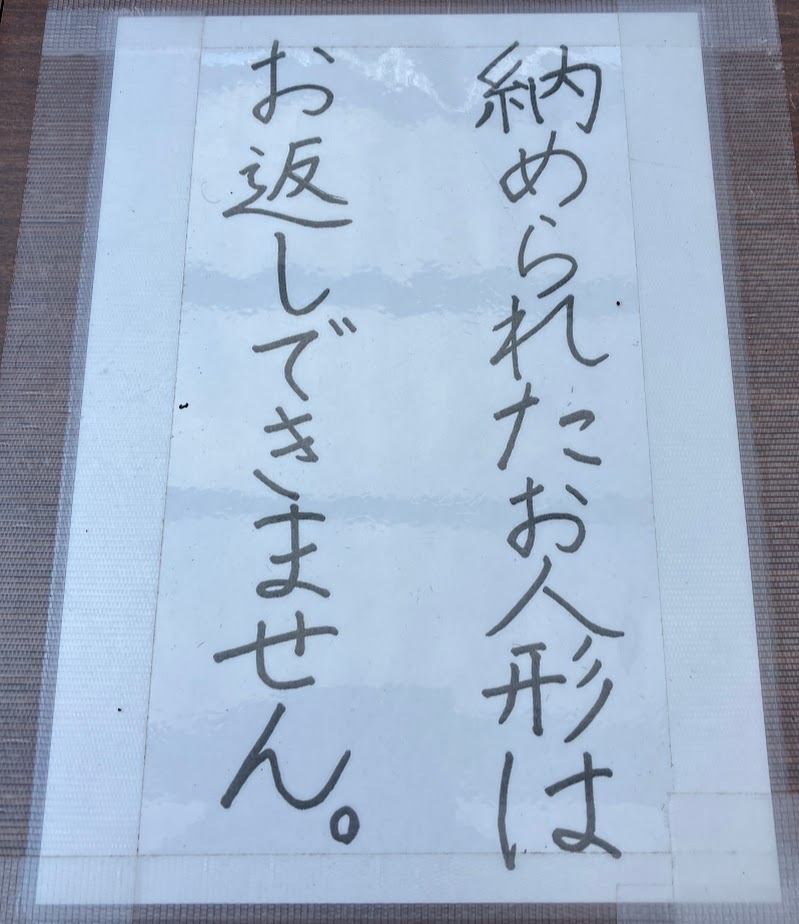 納められたお人形は
お返しできません。